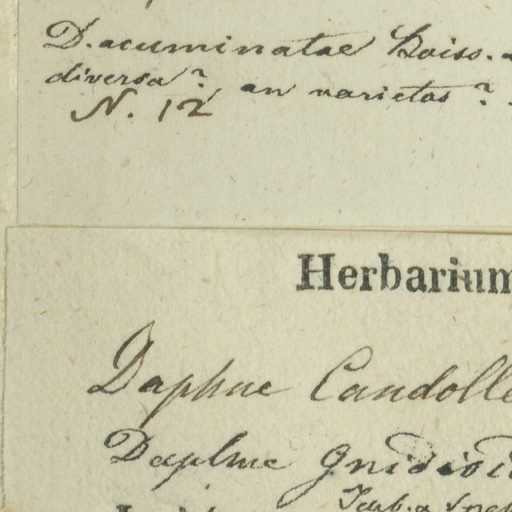 D. acuminatae Boiss.
diversa? an varietas?
N. 12
Herbarium
Daphne Candolle
Daphne gnidioi